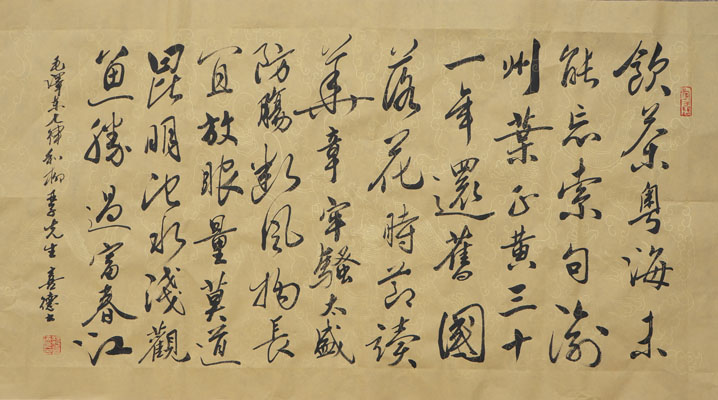 飲茶粵海未
能忘索句渝
州葉正黃三十
一年還舊國
落花時節讀
華章牢騷太盛
防腸斷風物長
宜放眼量莫道
昆明池水淺觀
魚勝過富春江
毛澤東七律和柳亞子先生 喜德書